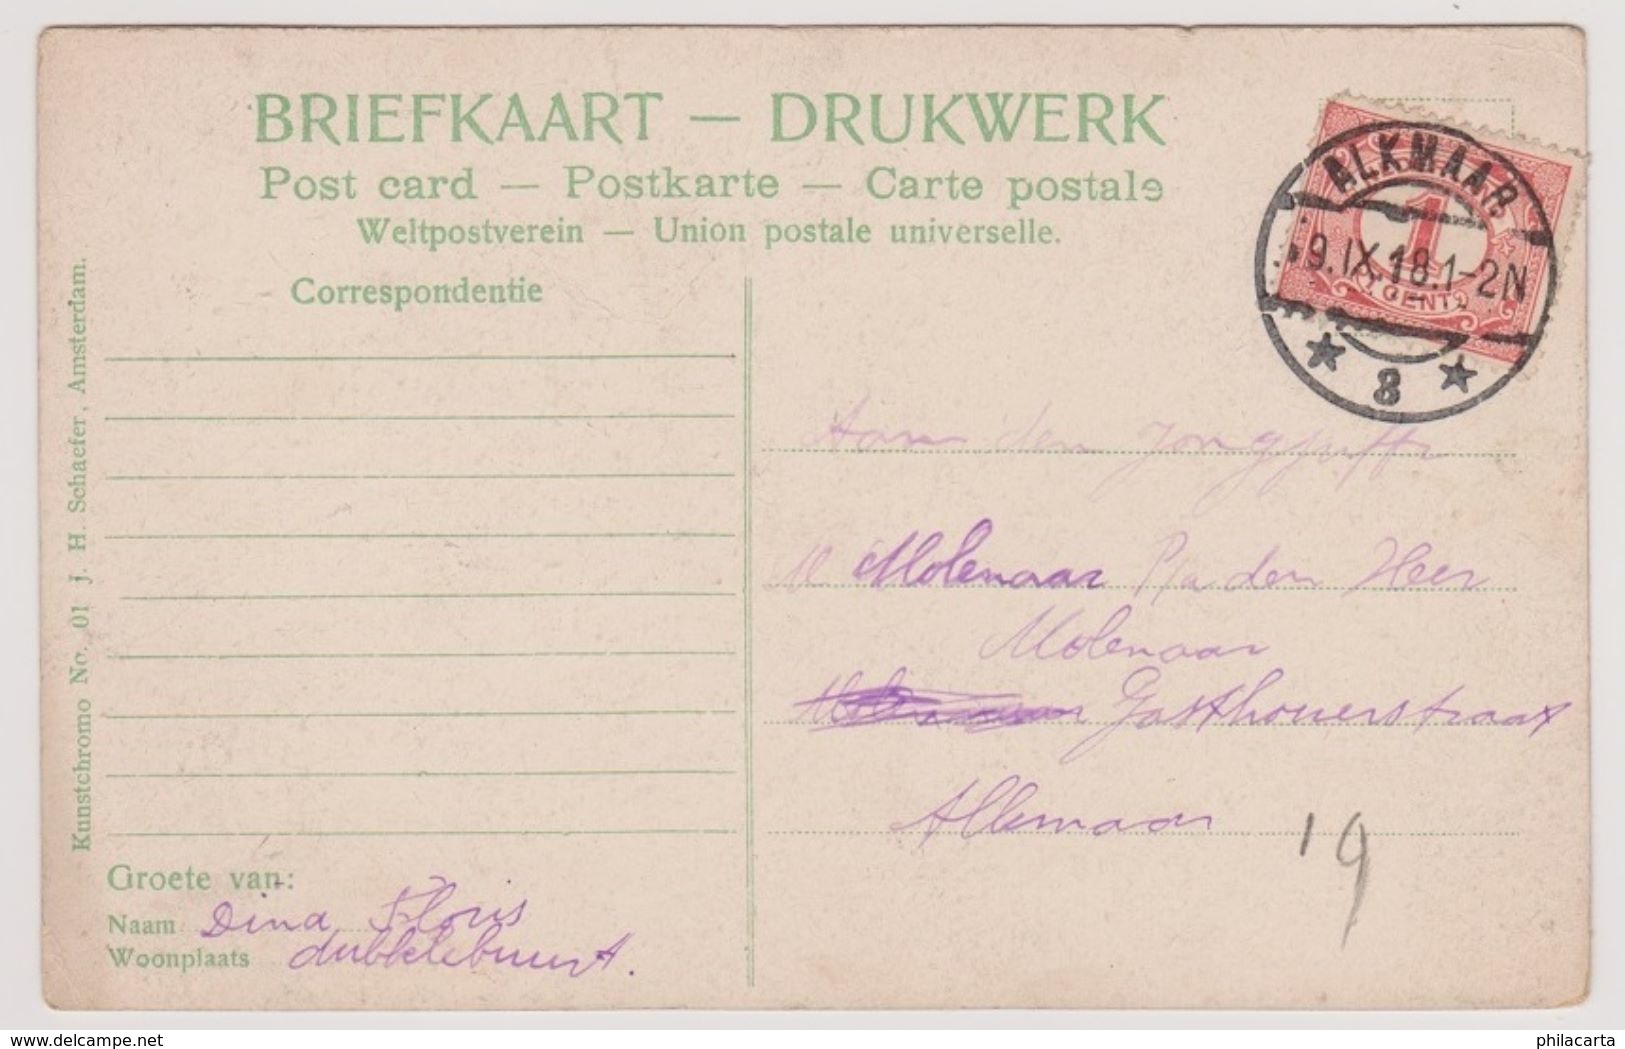 BRIEFKAART — DRUKWERK
Post card — Postkarte — Carte postale
Weltpostverein — Union postale universelle.
Correspondentie
ALKMAAR
9.IX.18.1-2N
1
CENT
* 8 *
Aan den Jongjuffr
M Molenaar P/a den Heer
Molenaar
Gasthouerstraat
Alkmaar
19
Groete van:
Naam Dina Floris
Woonplaats dubbelebuurt.
Kunstchromo No. 01 J. H. Schaefer, Amsterdam.
www.delcampe.net
philacarta